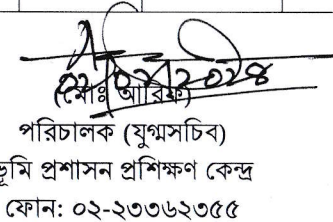 (মোঃ আরিফ)
পরিচালক (যুগ্মসচিব)
ভূমি প্রশাসন প্রশিক্ষণ কেন্দ্র
ফোন: ০২-২৩৩৬২৩৫৫